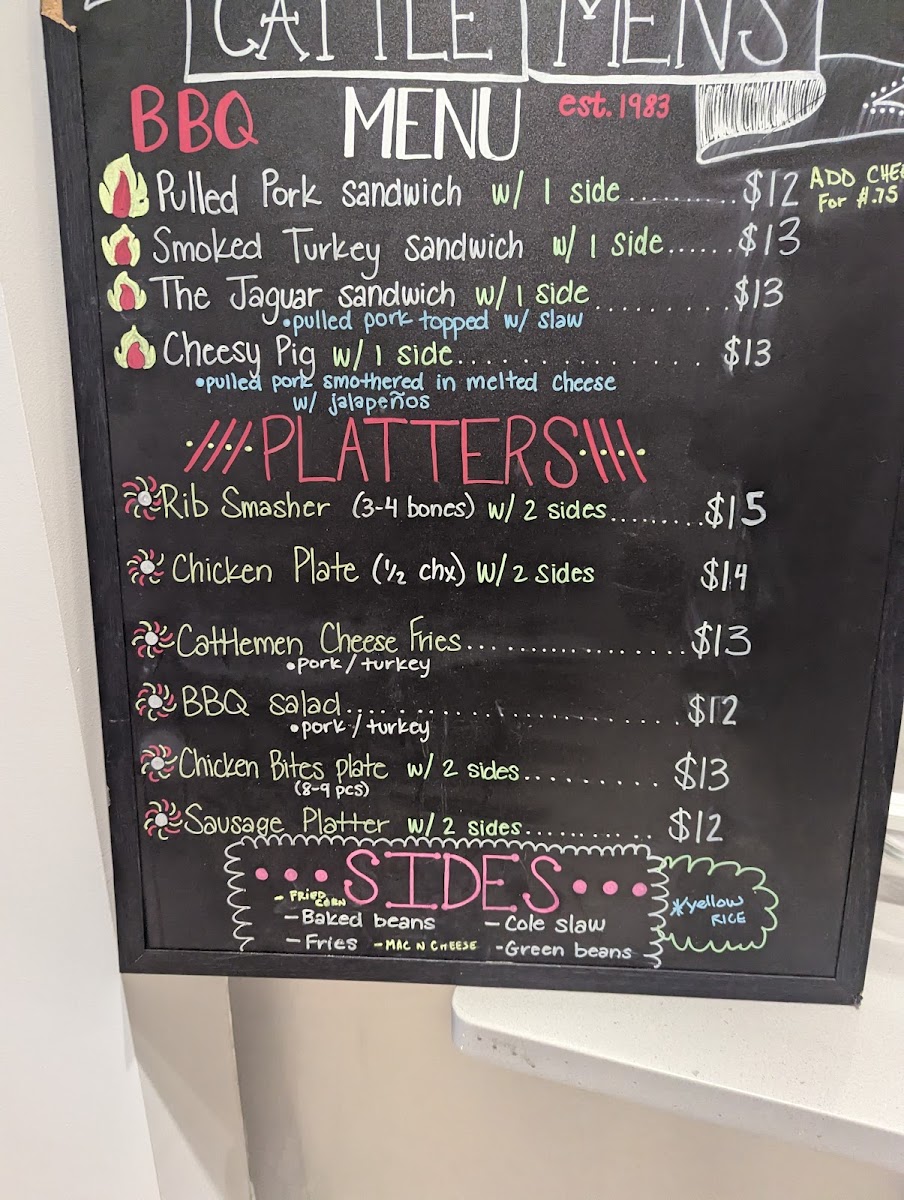 CATTLE MENS
BBQ MENU est. 1983
Pulled Pork sandwich w/ 1 side .......... $12
ADD CHEE
For $.75
Smoked Turkey sandwich w/ 1 side...... $13
The Jaguar sandwich w/ 1 side ............ $13
•pulled pork topped w/ slaw
Cheesy Pig w/ 1 side.................... $13
•pulled pork smothered in melted cheese
w/ jalapeños
PLATTERS
Rib Smasher (3-4 bones) w/ 2 sides........ $15
Chicken Plate (1/2 chx) w/ 2 sides $14
Cattlemen Cheese Fries..................... $13
•pork/turkey
BBQ salad.............................. $12
•pork/turkey
Chicken Bites plate w/ 2 sides............ $13
(8-9 pcs)
Sausage Platter w/ 2 sides............ $12
SIDES
- FRIED CORN
- Baked beans - Cole slaw
- Fries - MAC N CHEESE - Green beans
*yellow
RICE